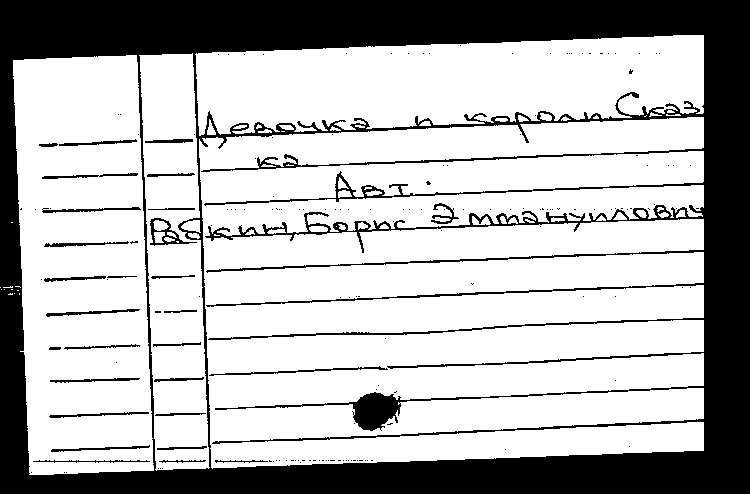 Девочка и короли. Сказ-
ка.
Авт.:
Рабкин, Борис Эммануилович